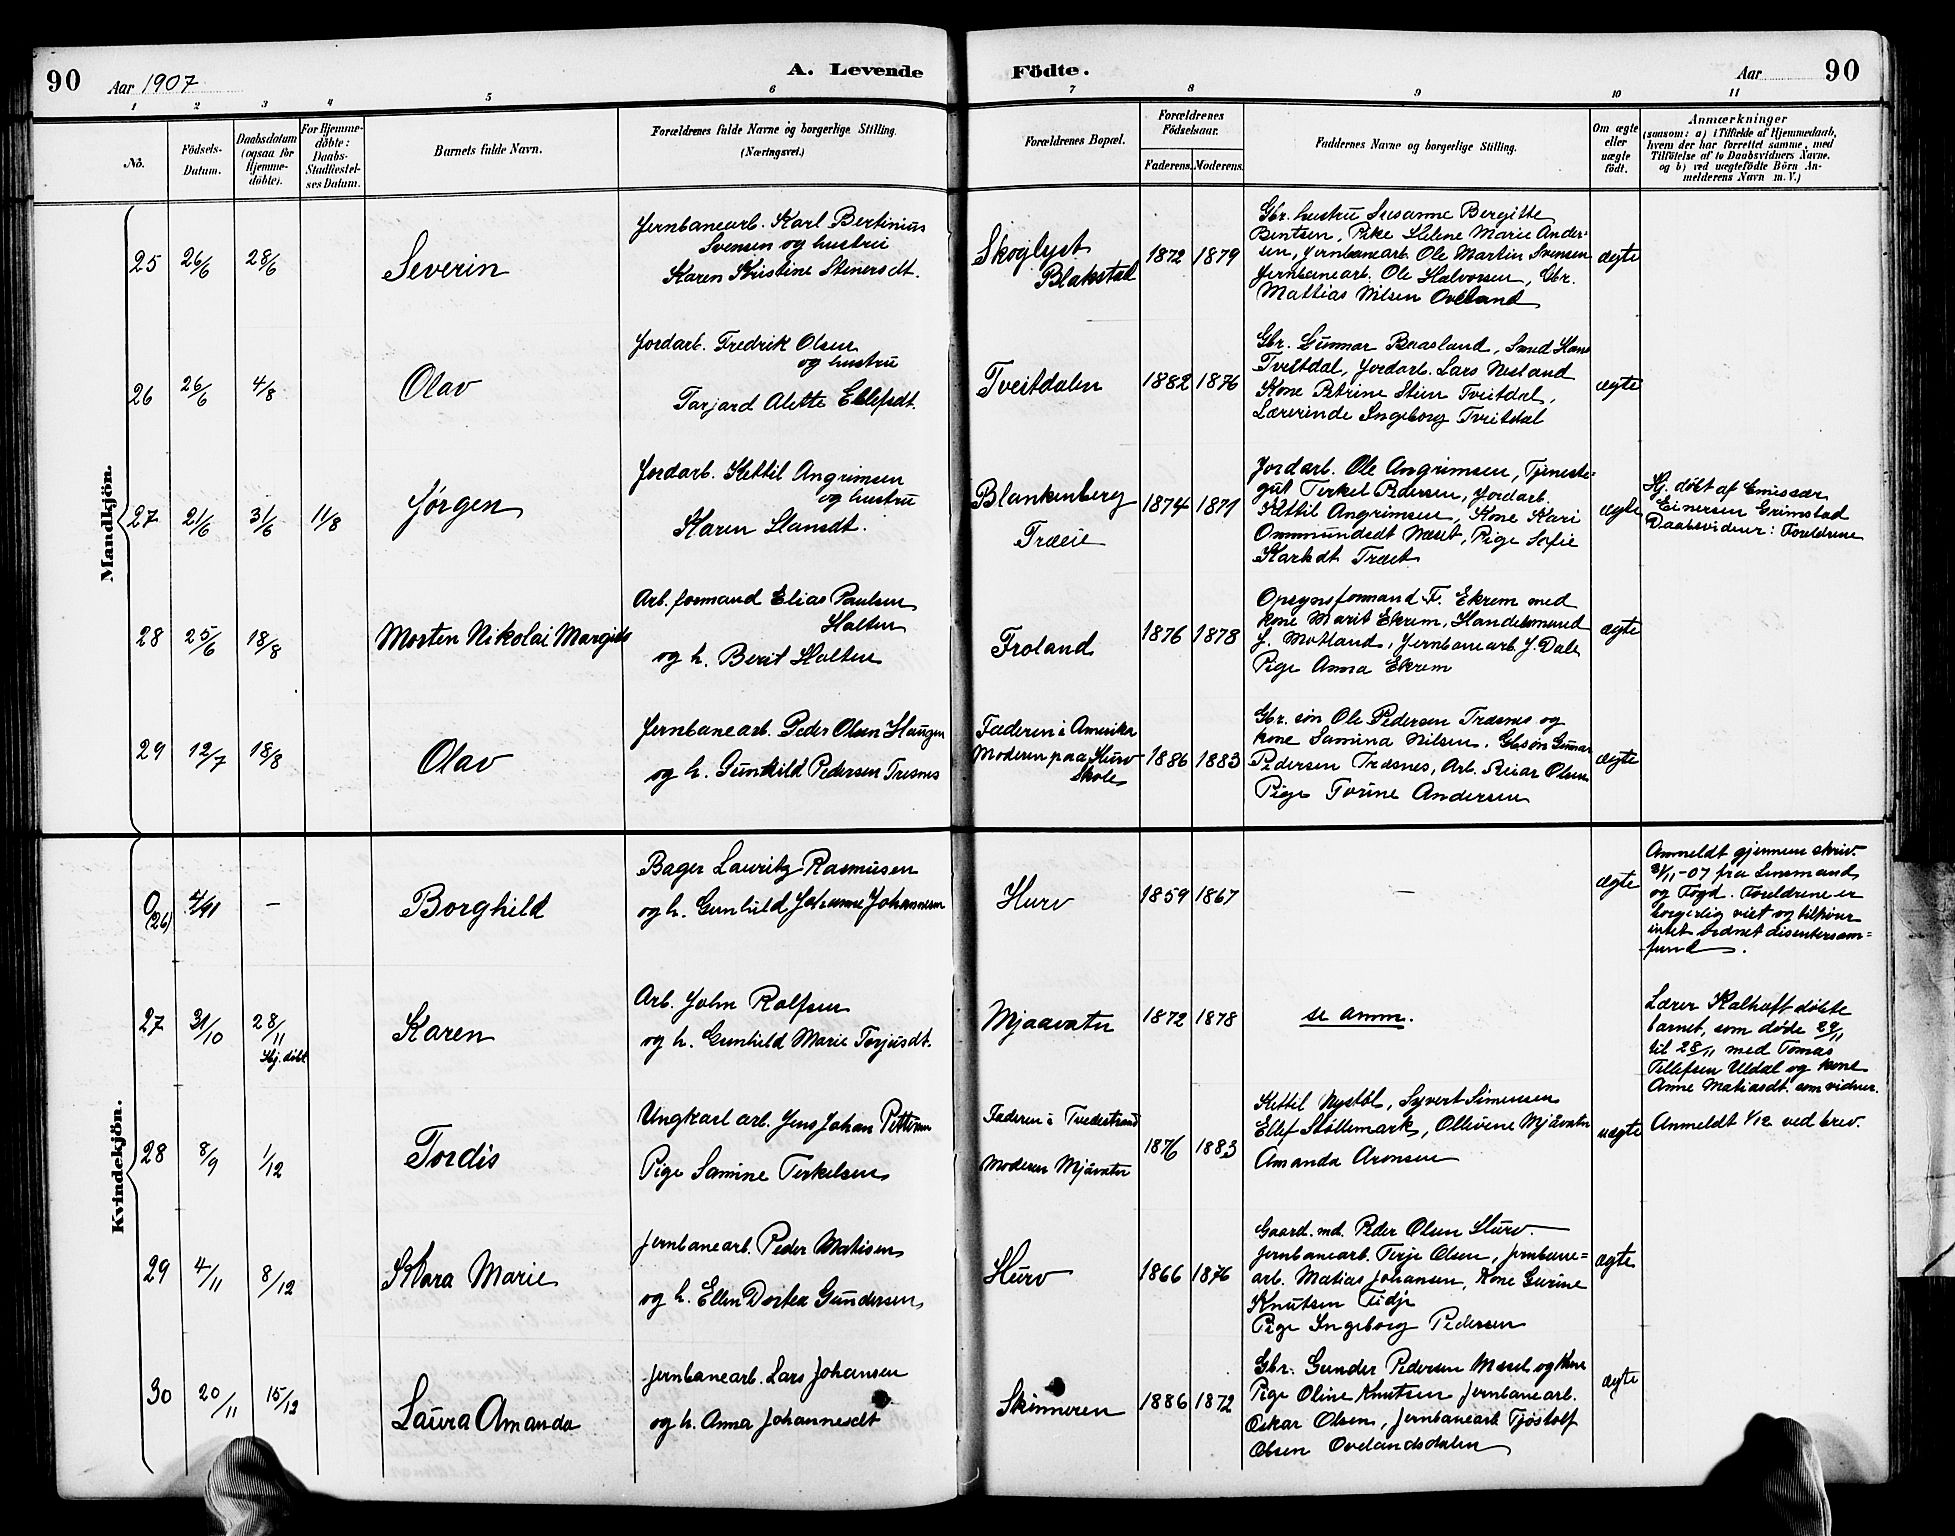 90 Aar 1907 A. Levende Födte. Aar 90
1 2 3 4 5 6 7 8 9 10 11
No.
Födsels-
Datum.
Daabsdatum
(ogsaa for
Hjemme-
döbte).
For Hjemme-
döbte:
Daabs-
Stadfæstel-
ses Datum.
Barnets fulde Navn.
Forældrenes fulde Navne og borgerlige Stilling.
(Næringsvei.)
Forældrenes Bopæl.
Forældrenes
Födselsaar.
Faderens. Moderens.
Faddernes Navne og borgerlige Stilling.
Om ægte
eller
uægte
födt.
Anmærkninger
(saasom: a) i Tilfælde af Hjemmedaab,
hvem der har forrettet samme, med
Tilföielse af to Daabsvidners Navne,
og b) ved uægtefödte Börn An-
melderens Navn m. V.)
Mandkjön.
25 26/6 28/6 Severin
Jernbanearb. Karl Bertinius
Svensen og hustru
Karen Kristine Steinersdt.
Skoglyst
Blakstad
1872 1879
Gbr. hustru Susanne Bergitte
Bentsen, Pike Helene Marie Ander-
sen, Jernbanearb. Ole Martin Svensen
Jernbanearb. Ole Halvorsen, Gbr.
Mattias Nilsen Oveland
ægte
26 26/6 4/8 Olav
Jordarb. Fredrik Olsen
og hustru
Tarjard Alette Ellefsdt.
Tveitdalen
1882 1876
Gbr. Gunnar Baasland, Smed Hans
Tveitdal, Jordarb. Lars Nesland
Kone Petrine Stien Tveitdal,
Lærerinde Ingeborg Tveitdal
ægte
27 21/6 31/6 11/8 Jørgen
Jordarb. Kettil Angrimsen
og hustru
Karen Hansdt.
Blankenberg
Træeie
1874 1871
Jordarb. Ole Angrimsen, Tjeneste-
gut Terkel Pedersen, Jordarb.
Kettil Angrimsen, Kone Kari
Ommundsdt Næset, Pige Sofie
Træet
ægte
Hj. døbt af Emissær
Einersen Grimstad
Daabsvidner: Foreldrene
28 25/6 18/8 Morten Nikolai Margido
Arb. formand Elias Paulsen
Halten
og h. Berit Halten
Froland
1876 1878
Opsynsformand F. Ekrem med
kone Marit Ekrem, Handelsmand
J. Motland, Jernbanearb. J. Dale
Pige Anna Ekrem
ægte
29 12/7 18/8 Olav
Jernbanearb. Peder Olsen Haugen
og h. Gunhild Pedersen Tresnes
Faderen i Amerika
Moderen paa Hurv
Skole
1886 1883
Gbr. søn Ole Pedersen Træsnes og
kone Samina Nilsen. Gbsøn Gunnar
Pedersen Træsnes, Arb. Reiar Olsen
Pige Torine Andersen
ægte
Kvindekjön.
0
(26) – Borghild
Bager Lauritz Rasmusen
og h. Gunhild Johanne Johannesen
Hurv
1859 1867
–
ægte
Anmeldt gjennem skriv.
/11-07 fra Lensmand
og Fogd. Foreldrene er
borgerlig viet og tilhører
intet ordnet disentersam=
fund.
27 31/10 28/11
Hj. døbt
Karen
Arb. John Rolfsen
og h. Gunhild Marie Torjusdt.
Mjaavatn
1872 1878
se anm.
Lærer Kalhoft døbte
barnet, som døde 29/11
til 28/11 med Tomas
Tellefsen Uldal og kone
Anne Matiasdt. som vidner.
28 8/9 1/12 Tordis
Ungkarl arb. Jens Johan Pettersen
Pige Samine Terkelsen
Faderen i Tvedestrand
Moderen Mjåvatn
1876 1883
Kettil Nystøl, Syvert Simensen
Ellef Støllemark, Ollevine Mjåvatn
Amanda Aronsen
uægte
Anmeldt 1/12 ved brev.
29 4/11 8/12 Klara Marie
Jernbanearb. Peder Matisen
og h. Ellen Dortea Gundersen
Hurv
1866 1876
Gaard. md. Peder Olsen Hurv
Jernbanearb. Terje Olsen, jernbane=
arb. Matias Johansen, Kone Gurine
Knutsen Tidje
Pige Ingeborg Pedersen
ægte
30 20/11 15/12 Laura Amanda
Jernbanearb. Lars Johansen
og h. Anna Johannesdt
Skinneren
1886 1872
Gbr. Gunder Pedersen Mæsel og Kone
Pige Oline Knutsen Jernbanearb.
Oskar Olsen, Jernbanearb Tjøstolf
Olsen Ovelandsdalen
ægte